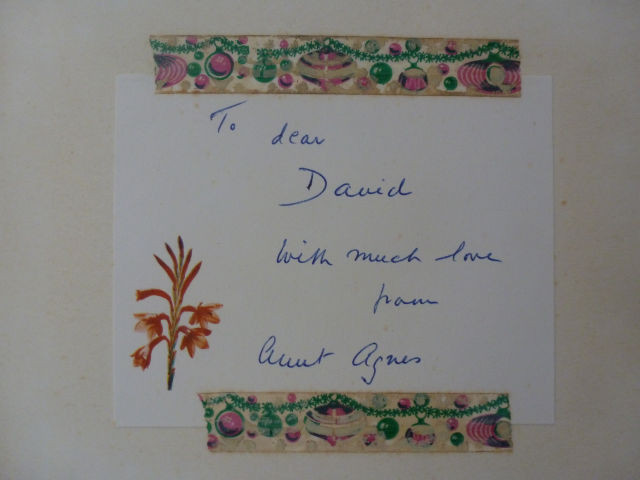 To dear
David
With much love
from
Aunt Agnes